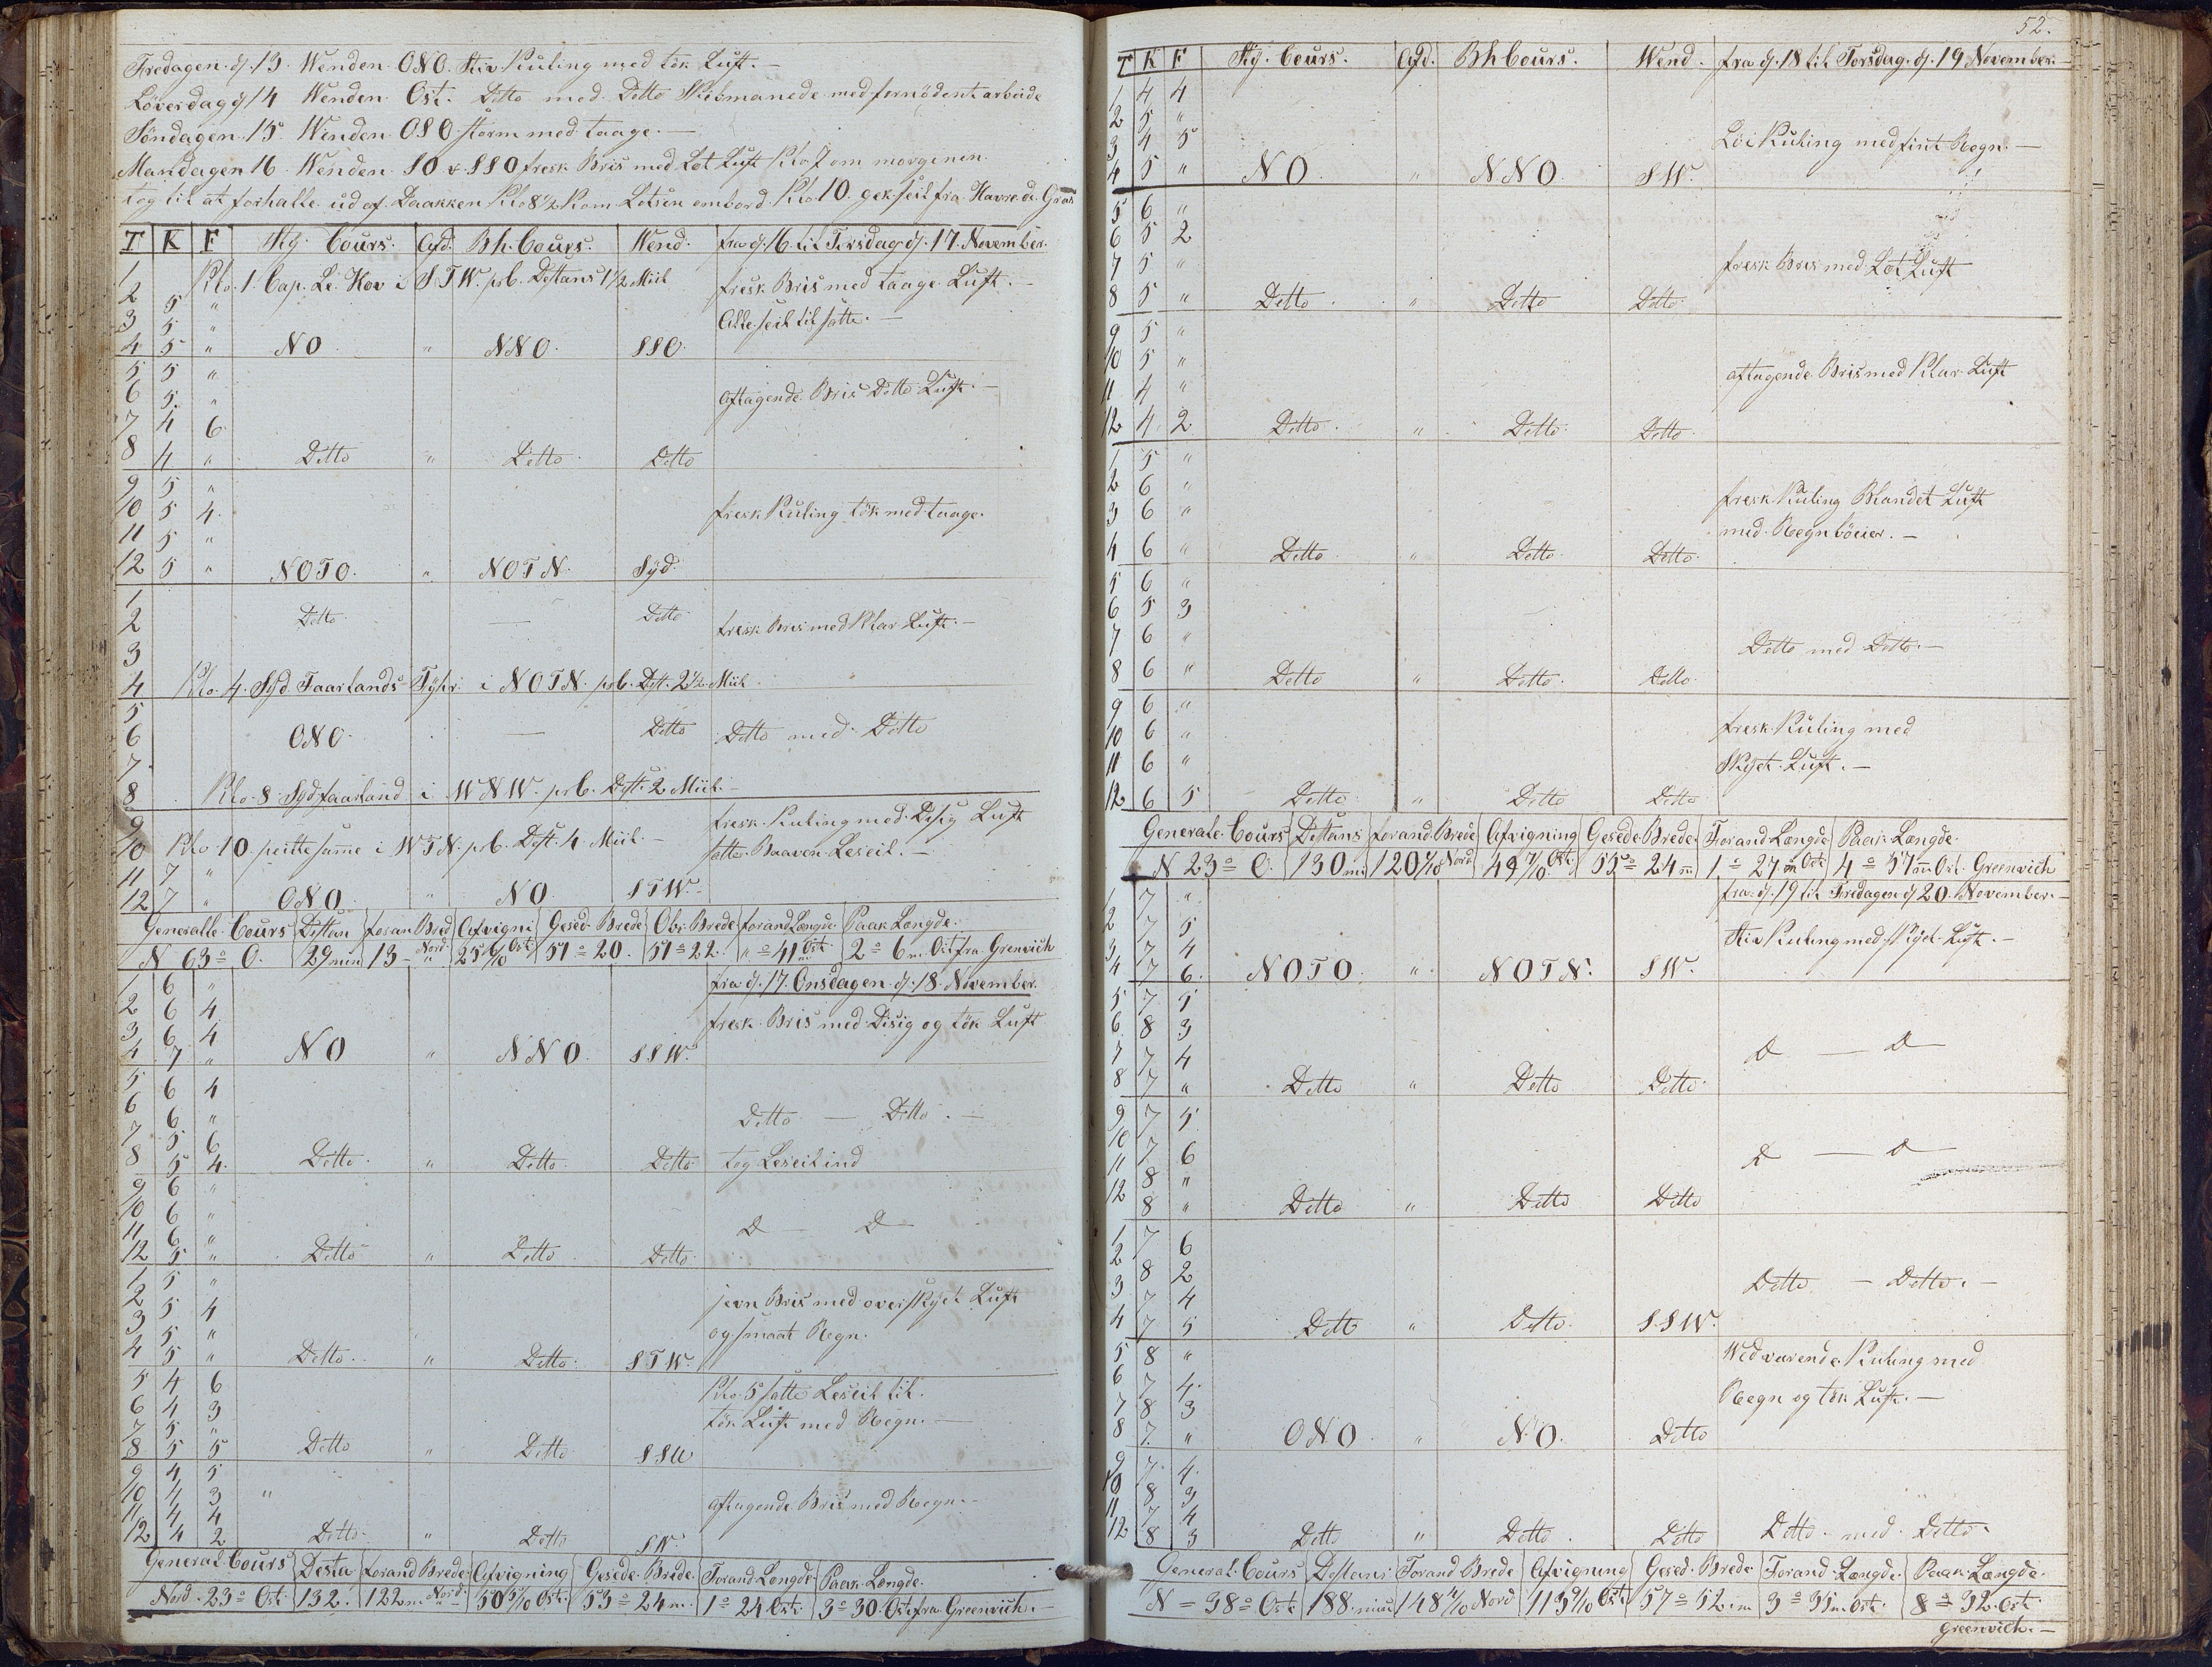 Fredagen. d. 13. Wenden. ONO. Stiv Kuling med tök Luft. —
Löverdag d 14 Wenden Ost. Ditto med Ditto Skibmanede med fornödent arbeide
Söndagen. 15. Winden. OSO storm med taage. —
Mandagen 16. Wenden. SO & SSO fresk Bris med Löt Luft Klo. 7 om morgenen.
tog til at forhalle ud af Daakken Klo 8½ kom Lotsen ombord. Klo. 10. gek seil fra Havre. de. Gras
T K F Stg. Cours. Afd. Bh. Cours. Wend. fra d. 16. til Tirsdag d. 17. November.
1 Klo. 1. Cap. Le. Hov i STW. prb. Distans 1½ Miil fresk Bris med taage Luft. —
2 5 "
3 5 " Alle seil til satte. —
4 5 " NO " NNO. SSO.
5 5 "
6 5. " aftagende Bris Ditto Luft. —
7 4 6
8 4 " Ditto " Ditto Ditto
9 5 "
10 5 4. fresk Kuling tök med taage.
11 5 "
12 5 " NOTO. " NOTN. Syd.
1
2 Ditto. — Ditto fresk Bris med Klar Luft. —
3
4 Klo. 4. Syd Faarlands Fyhr i NOTN. prb. Dist. 2½ Miil
5
6 ONO. — Ditto Ditto med Ditto
7
8 Klo. 8 Syd faarland i WNW. prb. Dist. 2 Miil. —
9 fresk Kuling med Disig Luft
10 Klo. 10. peilte samme i WTN. prb. Dist. 4 Miil. — satte Baaven Leseil. —
11 7 "
12 7 " ONO. " NO. STW.
Generalle Cours Distan foran Bred Afvigni Gesed. Brede Obs. Brede forand Længde Paak. Længde.
N 63° O. 29 min 13 Nord. 25 6/10 Ost 51° 20. 51° 22. " ° 41 Ost. 2° 6 m. Ost fra Grenvich
fra d. 17. Onsdagen. d. 18. November.
1 6 "
2 6 4 fresk Bris med Disig og tök Luft
3 6 4
4 7 " NO " NNO. SSW.
5 6 4
6 6 " Ditto — Ditto. —
7 5 6
8 5 4. Ditto. " Ditto. Ditto tog Leseil ind
9 6 "
10 6 "
11 6 " D — D —
12 5. " Ditto " Ditto Ditto
1 5 "
2 5 4 jevn Bris med overskyet Luft
3 5 " og smaat Regn.
4 5 " Ditto. " Ditto. STW.
5 4 6 Klo. 5 satte Leseil til.
6 4 3 tök Luft med Regn. —
7 5 "
8 5 5 Ditto " Ditto SSW
9 4 5
10 4 3 " aftagende Bris med Regn. —
11 4 4
12 4 2 Ditto. " Ditto SW.
General Cours Dista forand Brede Afvigning Gesede Brede. Forand Længde. Paak. Længde.
Nord. 23° Ost. 132. 122 m. Nord. 50 5/10 Ost. 53° 24 m. 1° 24 Ost. 3° 30. Ost fra Greenvich. —
52.
T K F Stg. Cours. Afd. Bh Cours. Wend. fra d. 18 til Torsdag. d. 19 November. —
1 4 4
2 5 "
3 4 5 Löi Kuling med fint Regn. —
4 5 " NO. " NNO. SW.
5 6 "
6 5 2
7 5 " fresk Bris med Löt Luft
8 5 " Ditto. " Ditto Ditto
9 5 "
10 5 " aftagende Bris med Klar Luft
11 4 "
12 4 2 Ditto. " Ditto Ditto
1 5 "
2 6 " fresk Kuling Blandet Luft
3 6 " med Regn böeier. —
4 6 " Ditto " Ditto Ditto
5 6 "
6 5 3
7 6 " Ditto med Ditto. —
8 6 " Ditto " Ditto. Ditto
9 6 "
10 6 " fresk Kuling med
11 6 " Skyet Luft. —
12 6 5 Ditto " Ditto Ditto
Generale Cours Distans forand Brede Afvigning Gesede Brede. Forand Længde Paak. Længde.
N 23° O. 130 m. 120 7/10 Nord 49 7/10 Ost. 55° 24 m 1° 27 m Ost 4° 57 m Ost. Greenvich
fra d. 19 til Fredagen d 20. November. —
1 7 "
2 7 5 Stiv Kuling med skyet Luft. —
3 7 4
4 7 6. NOTO " NOTN. SW.
5 7 5
6 8 3
7 7 4 D — D —
8 7 " Ditto " Ditto Ditto
9 7 5
10 7 6
11 8 " D — D —
12 8 " Ditto " Ditto Ditto
1 7 6
2 8 2
3 7 4 Ditto. — Ditto. —
4 7 5 Ditto " Ditto. SSW.
5 8 " Wedvarende Kuling med
6 7 4. Regn og tök Luft. —
7 8 3
8 7. " ONO " NO. Ditto
9 7 4.
10 8 3
11 7 4
12 8 3 Ditto " Ditto. Ditto Ditto med Ditto
General Cours Distans Forand Brede Afvigning Gesed. Brede Forand Længde. Paak Længde.
N — 38° Ost. 188. min 148 4/10 Nord 113 9/10 Ost 57° 52. m 3° 35 m. Ost. 8° 32. Ost
Greenvich. —